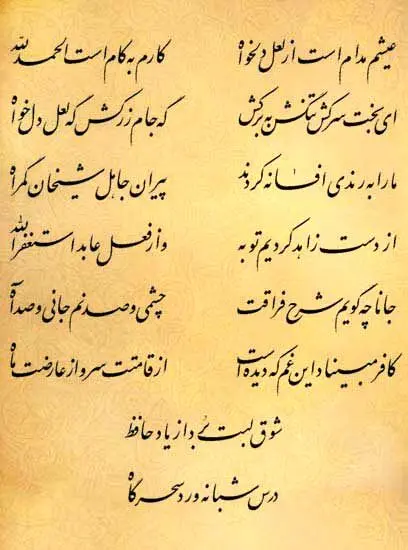 عیشم مدام است از لعل دلخواه کارم به کام است الحمدلله
ای بخت سرکش تنگش به بر کش گه جام زر کش گه لعل دلخواه
ما را به رندی افسانه کردند پیران جاهل شیخان گمراه
از دست زاهد کردیم توبه و از فعل عابد استغفرالله
جانا چه گویم شرح فراقت چشمی و صد نم جانی و صد آه
کافر مبیناد این غم که دیده است از قامتت سرو از عارضت ماه
شوق لبت برد از یاد حافظ
درس شبانه ورد سحرگاه